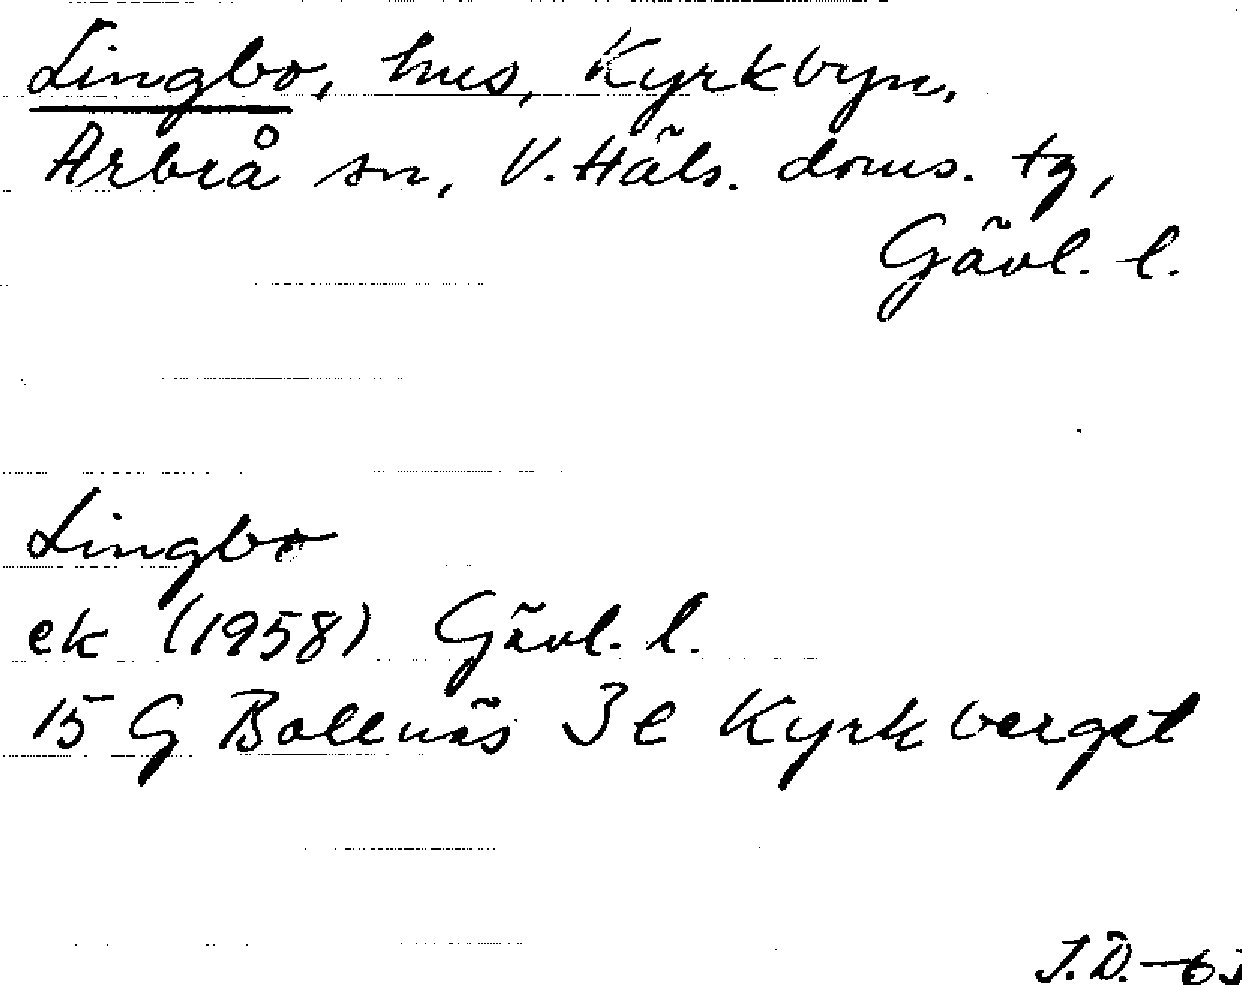 Lingbo, hus, Kyrkbyn,
Arbrå sn, V. Häls. doms. tg,
Gävl. l.
Lingbo
ek (1958) Gävl. l.
15 G Bollnäs 3 e Kyrkberget